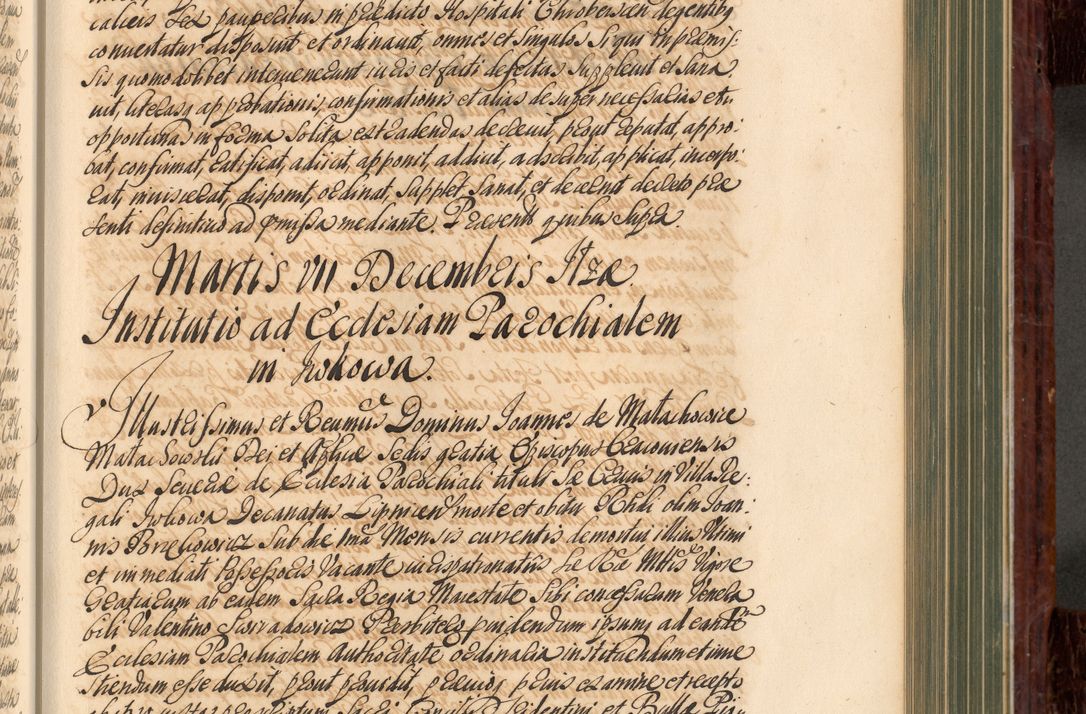 calicis seu pauperibus in prædicto Hospitali Chrobersien degentibus
convertatur disposuit, et ordinavit, omnes et singulos si qui in præmis-
sis quomodolibet intervenerunt iuris et facti defectus supplevit et sana
vit, literasq approbationis, confirmationis et alias desuper necessarias etu
opportunas in forma solita extradendas decrevit, prout reputat, appro:
bat, confirmat, ratificat, adiicit, apponit, addicit, adscribit, applicat, incorpo
rat, inviscerat, disponit, ordinat, supplet, sanat, et decernit decreto præ
senti definitivo ad præmissa mediante. Præsent quibus supra.
Martis VII Decembris Itzæ
Institutio ad Ecclesiam Parochialem
in Iwkowa.
Illustrissimus et Reumus Dominus Ioannes de Małachowice
Małachowski Dei et Aplicæ Sedis gratia Episcopus Cracoviensis
Dux Severiæ de Ecclesia Parochiali tituli Sæ Crucis in Villa Re:
gali Iwkowa Decanatus Lipnicen morte et obitu Rndi olim Ioan-
nis Porzekowicz sub die Ima Mensis currentis demortui illius Ultimi
et immediati Possessoris Vacante iurispatronatus Se Ræ Mttis Vigore
Gratiarum ab eadem Sacra Regia Maiestate Sibi concessarum Venera
bili Valentino Swiradowicz Presbitero providendum ipsumq ad eandē
Ecclesiam Parochialem Authoritate ordinaria instituendum et inve
stiendum esse duxit, prout providit, prævioq prævis examine et recepto
ab eo iuxta præscriptum Sacri Concilii Tridentini et Bulla Piæ